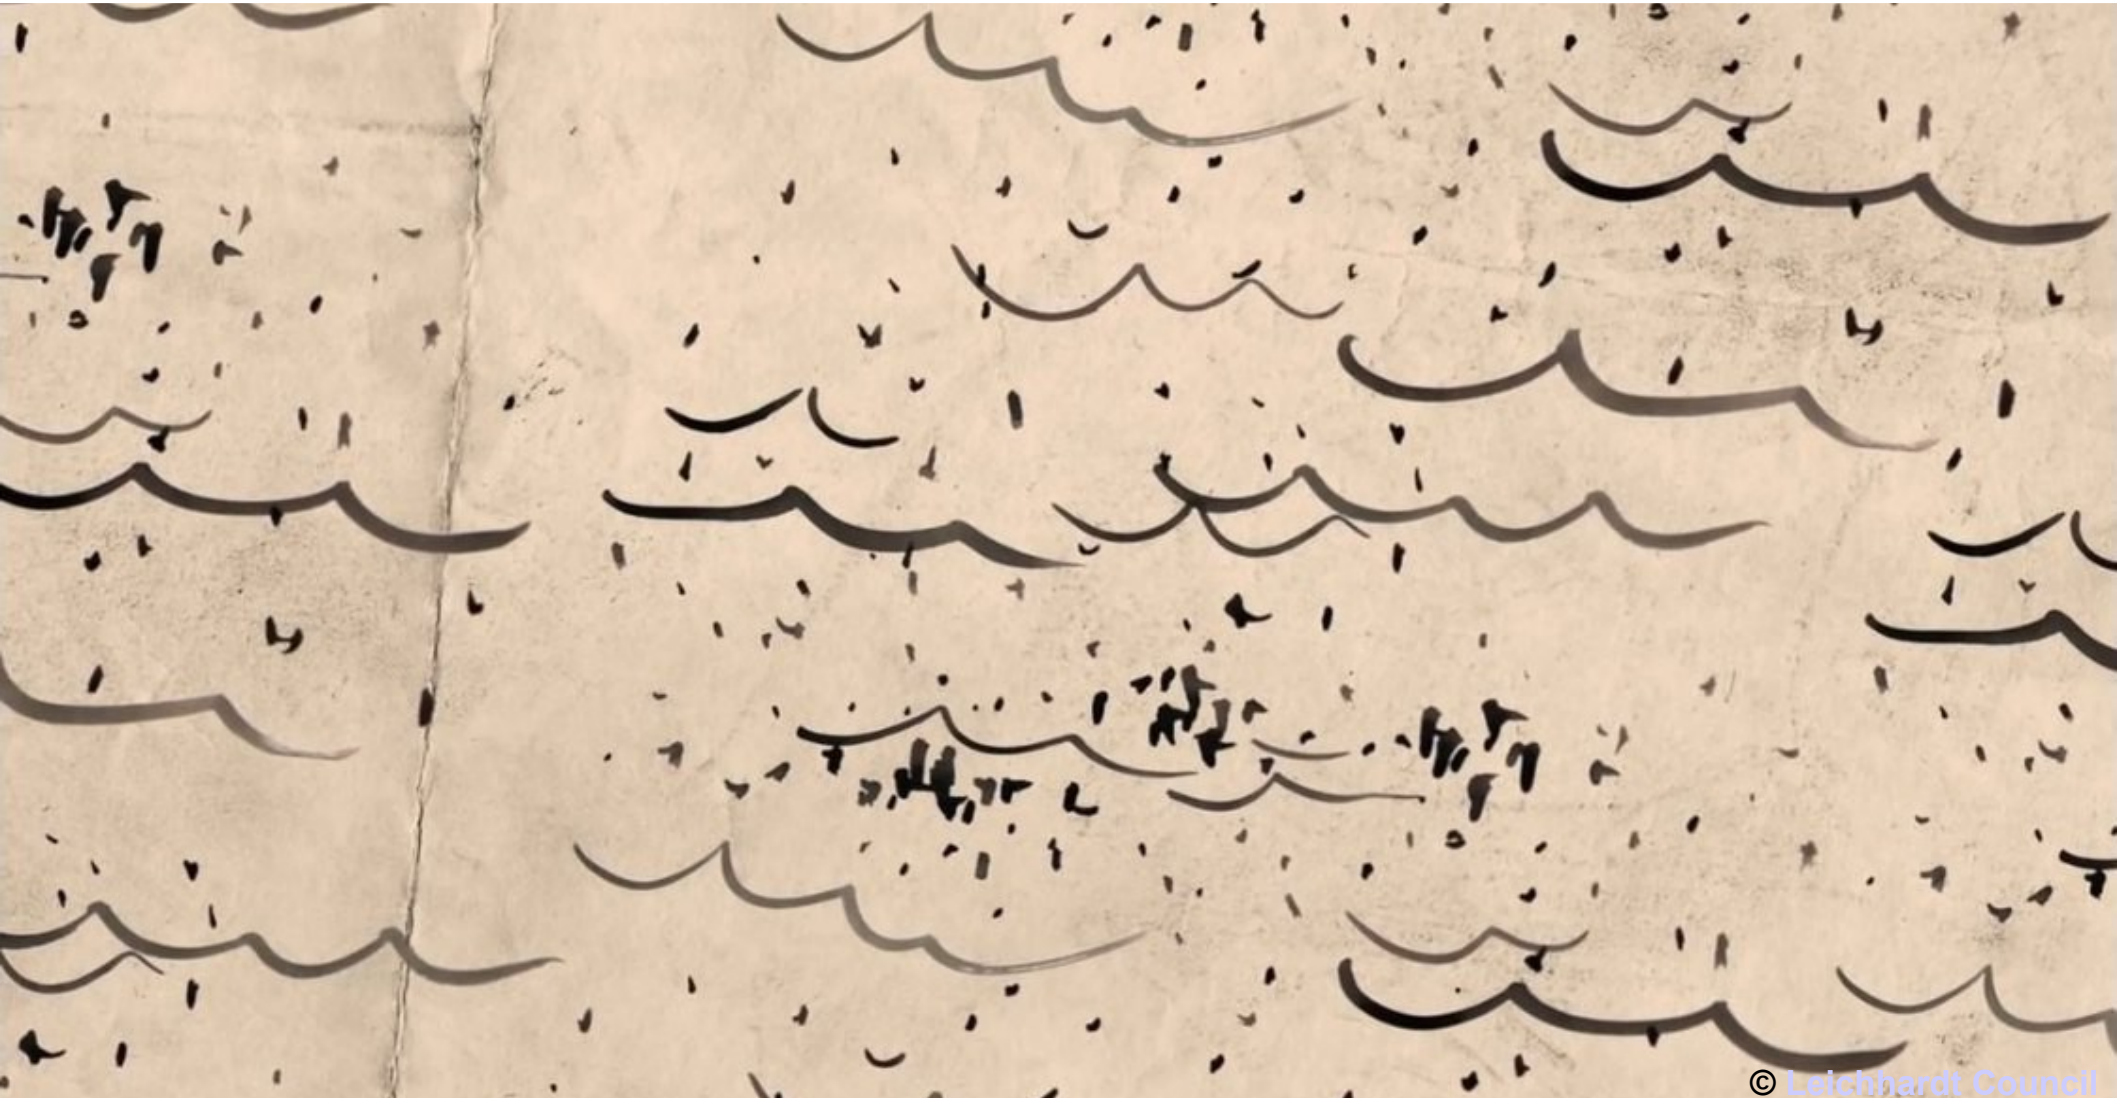 © Leichhardt Council